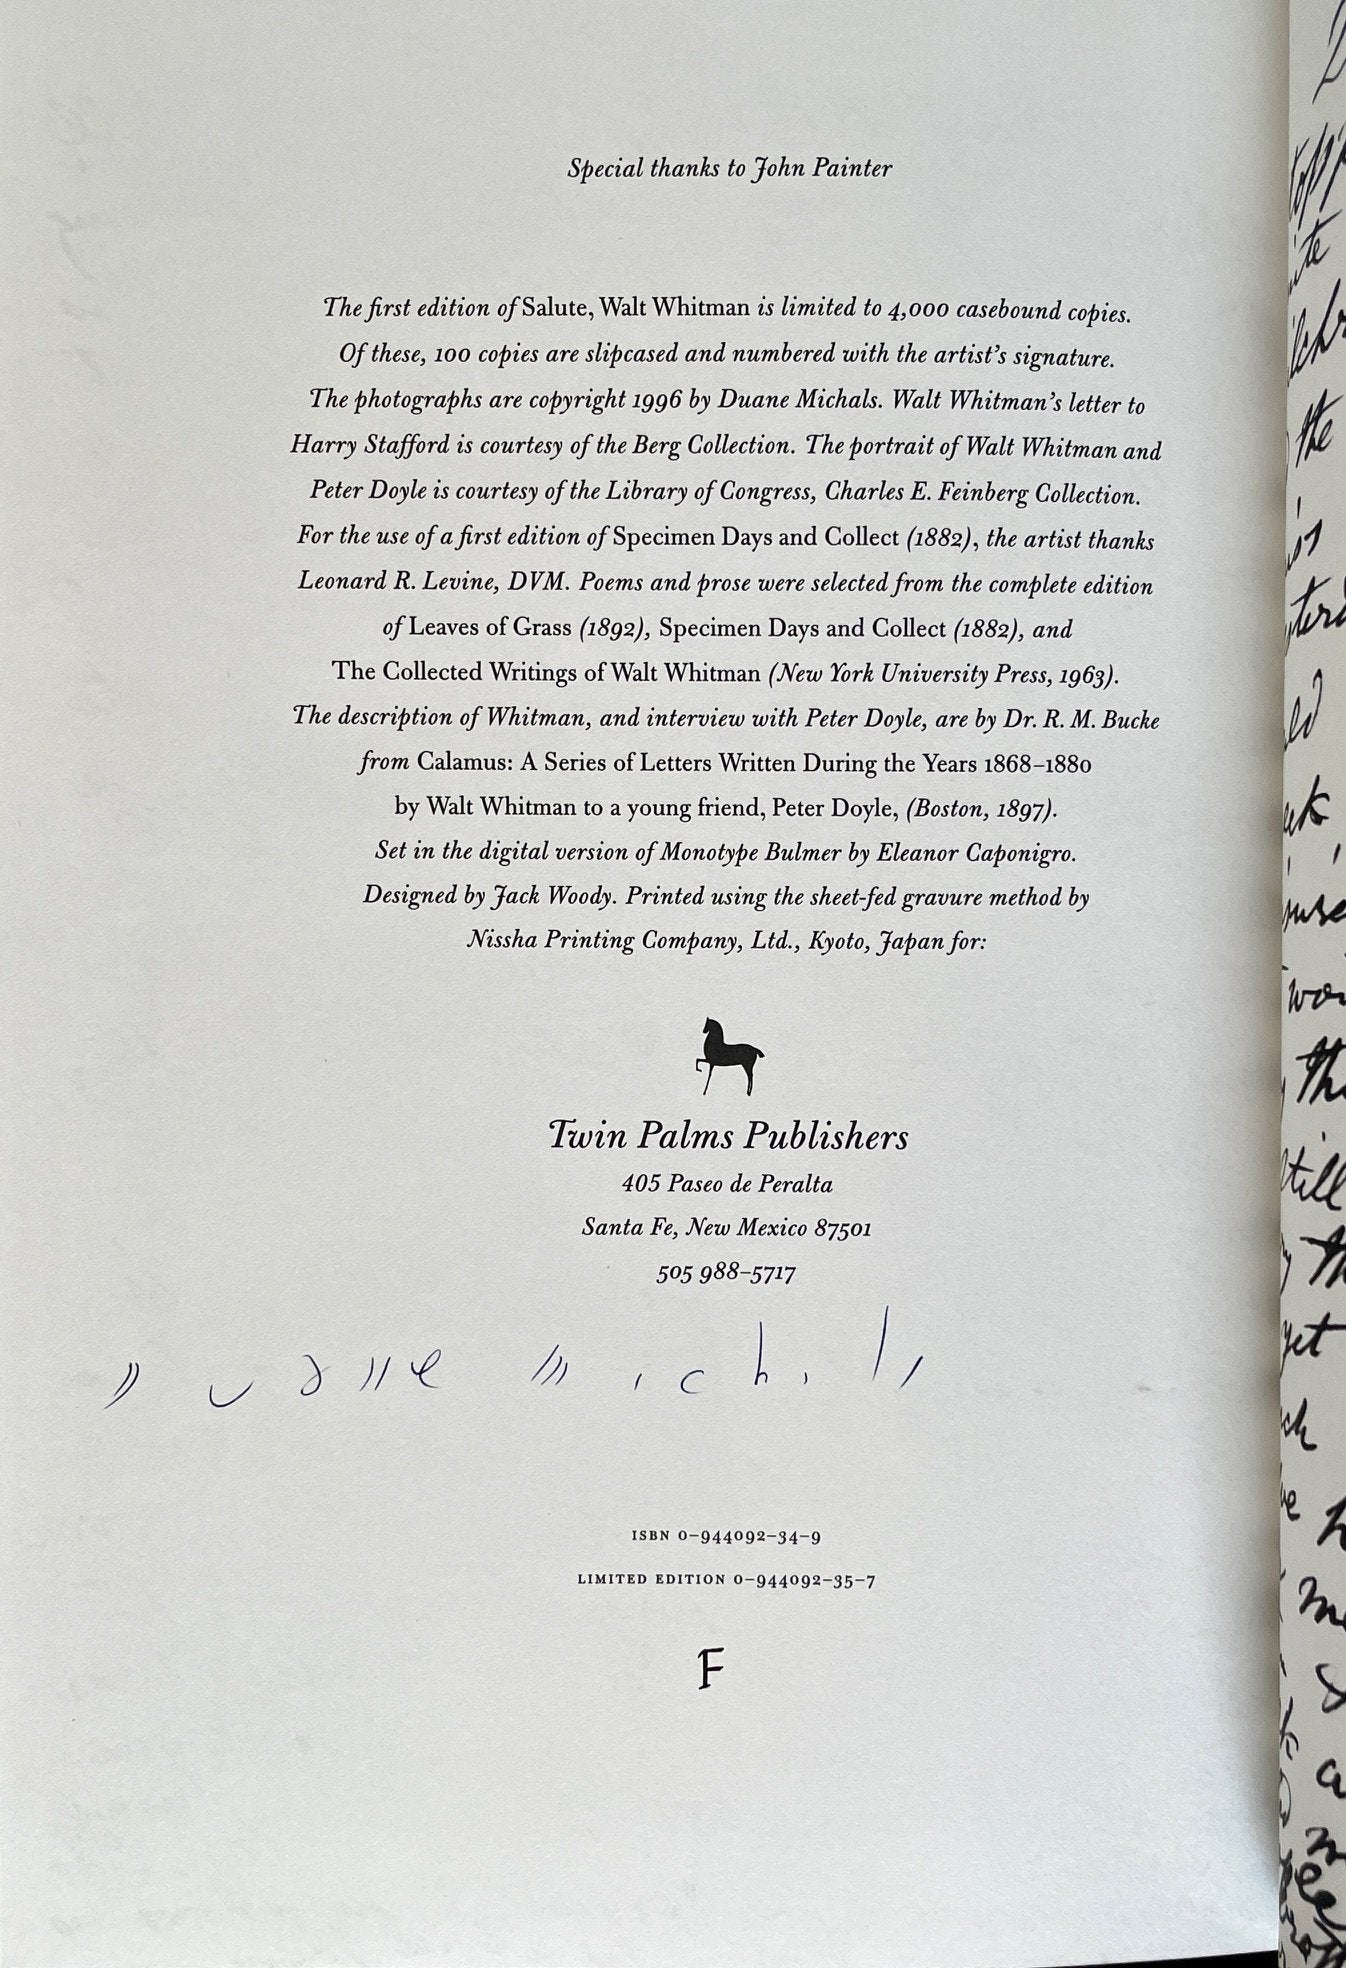 Special thanks to John Painter
The first edition of Salute, Walt Whitman is limited to 4,000 casebound copies.
Of these, 100 copies are slipcased and numbered with the artist's signature.
The photographs are copyright 1996 by Duane Michals. Walt Whitman's letter to
Harry Stafford is courtesy of the Berg Collection. The portrait of Walt Whitman and
Peter Doyle is courtesy of the Library of Congress, Charles E. Feinberg Collection.
For the use of a first edition of Specimen Days and Collect (1882), the artist thanks
Leonard R. Levine, DVM. Poems and prose were selected from the complete edition
of Leaves of Grass (1892), Specimen Days and Collect (1882), and
The Collected Writings of Walt Whitman (New York University Press, 1963).
The description of Whitman, and interview with Peter Doyle, are by Dr. R. M. Bucke
from Calamus: A Series of Letters Written During the Years 1868–1880
by Walt Whitman to a young friend, Peter Doyle, (Boston, 1897).
Set in the digital version of Monotype Bulmer by Eleanor Caponigro.
Designed by Jack Woody. Printed using the sheet-fed gravure method by
Nissha Printing Company, Ltd., Kyoto, Japan for:
Twin Palms Publishers
405 Paseo de Peralta
Santa Fe, New Mexico 87501
505 988–5717
Duane Michals
ISBN 0–944092–34–9
LIMITED EDITION 0–944092–35–7
F
the
still
yet